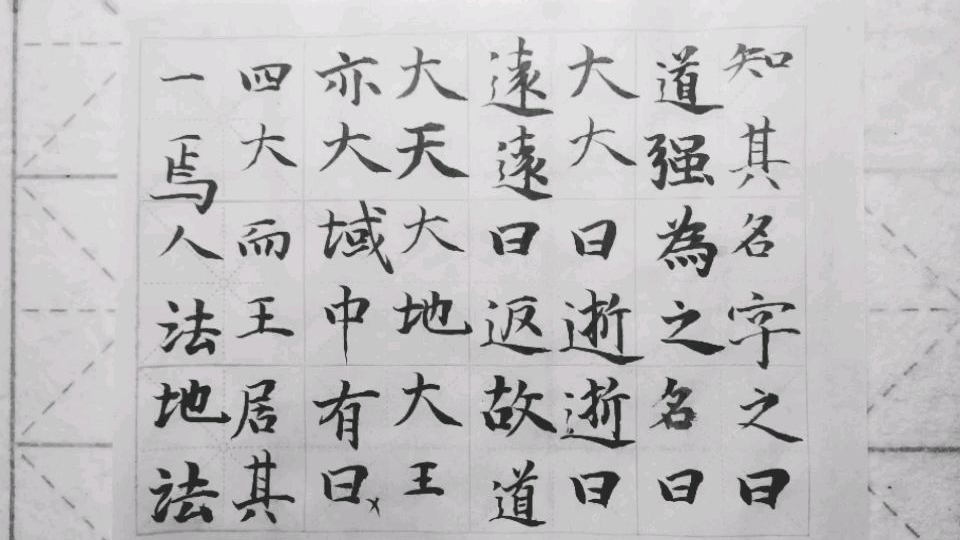 知其名字之曰
道强為之名曰
大大曰逝逝曰
遠遠曰返故道
大天大地大王
亦大域中有曰
四大而王居其
一焉人法地法